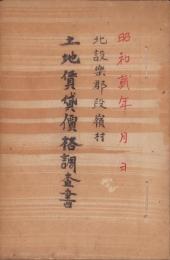 昭和貳年 月 日
北設楽郡段嶺村
土地賃貸價格調査書